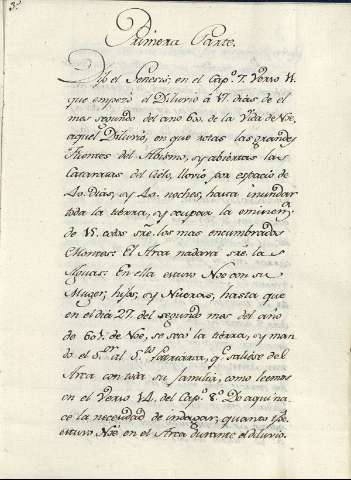 3.
Primera Parte.
Dijo el Genesis, en el Cap.º 7. Verso 11.
que empezó el Diluvio á 17. dias de el
mes segundo del año 600. de la Vida de Noe,
aquel Diluvio, en que rotas las grandes
Fuentes del Abismo, y abiertas las
Cataratas del Cielo, llovió por espacio de
40. Dias, y 40. noches, hasta inundar
toda la tierra, y ocupar la
de 15. codos sre. los mas encumbrados
Montes: El Arca nadara sre. las
Aguas: En ella estuvo Noe con su
Muger, hijos, y Nueras, hasta que
en el dia 27. del segundo mes del año
de 601. de Noe, se secó la tierra, y man
do el S.or al S.to q.e saliese del
Arca con toda su familia, como leemos
en el Verso 14. del Cap.º 8.º De aqui na
ce la necesidad de indagar, quanto
estuvo Noe en el Arca durante el diluvio.